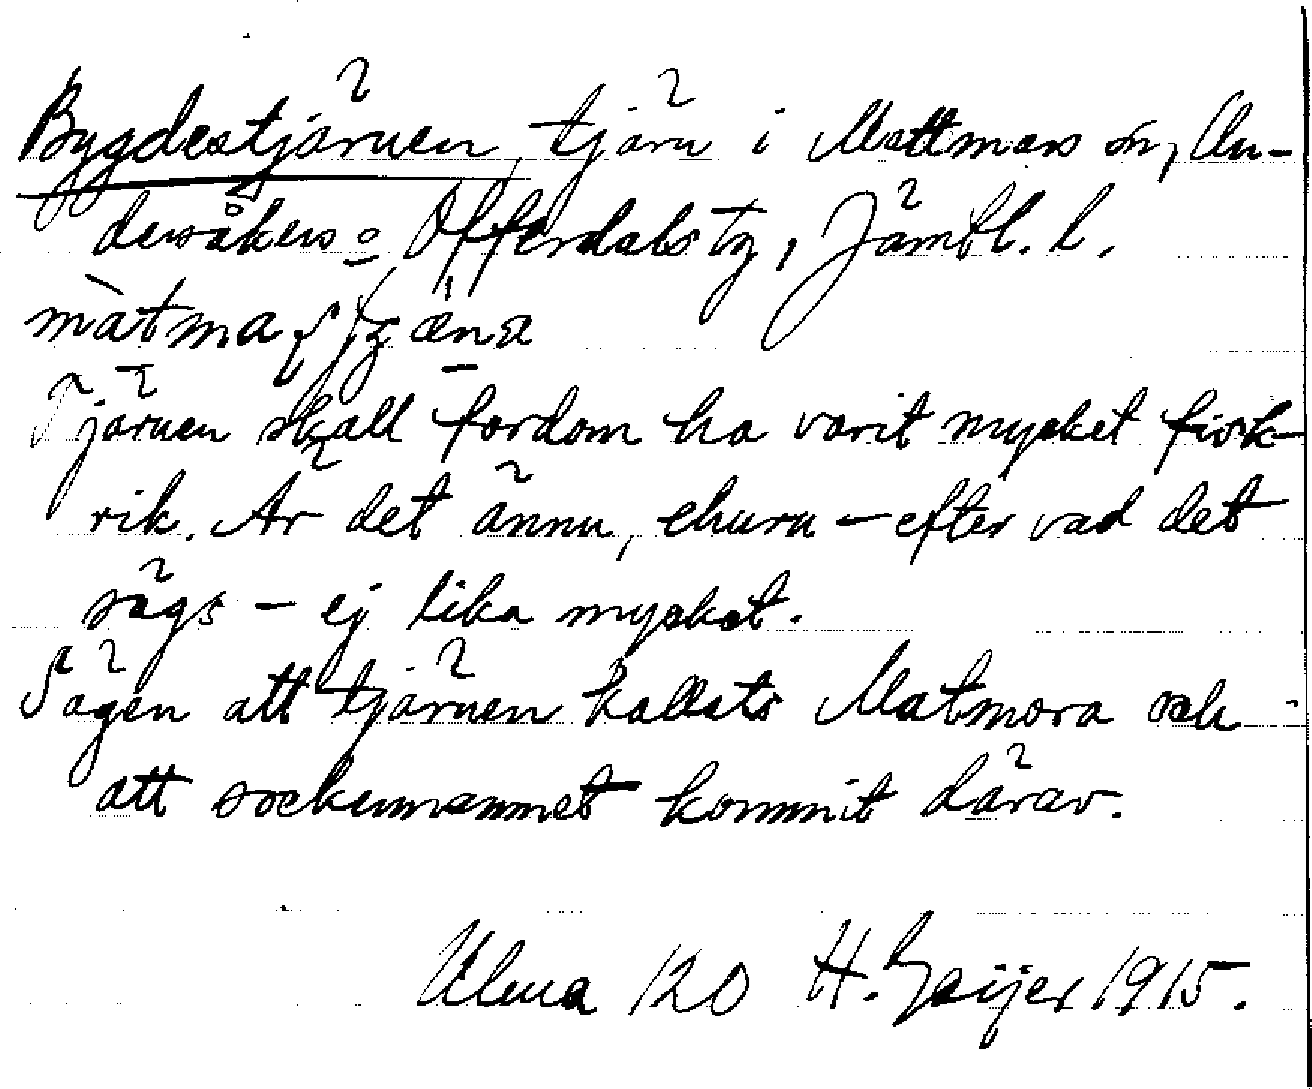 Bygdestjärnen, tjärn i Mattmars sn, Un-
dersåkers o Offerdals tg, Jämtl. l.
Tjärnen skall fordom ha varit mycket fisk-
rik. Är det ännu, ehuru – efter vad det
sägs – ej lika mycket.
Sägen att tjärnen kallats Matmora och
att sockennamnet kommit därav.
Ulma 120 H. Geijer 1915.